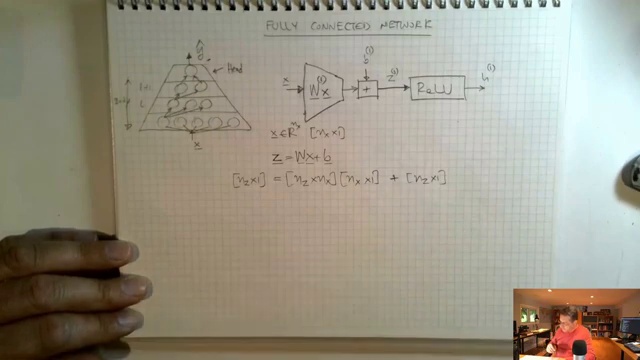 FULLY CONNECTED NETWORK
ŷ
Head
l+1
l
x
x
W^(1) x
b^(1)
+
z^(1)
ReLU
h^(1)
x ∈ R^nx [nx × 1]
z = Wx + b
[nz × 1] = [nz × nx] [nx × 1] + [nz × 1]